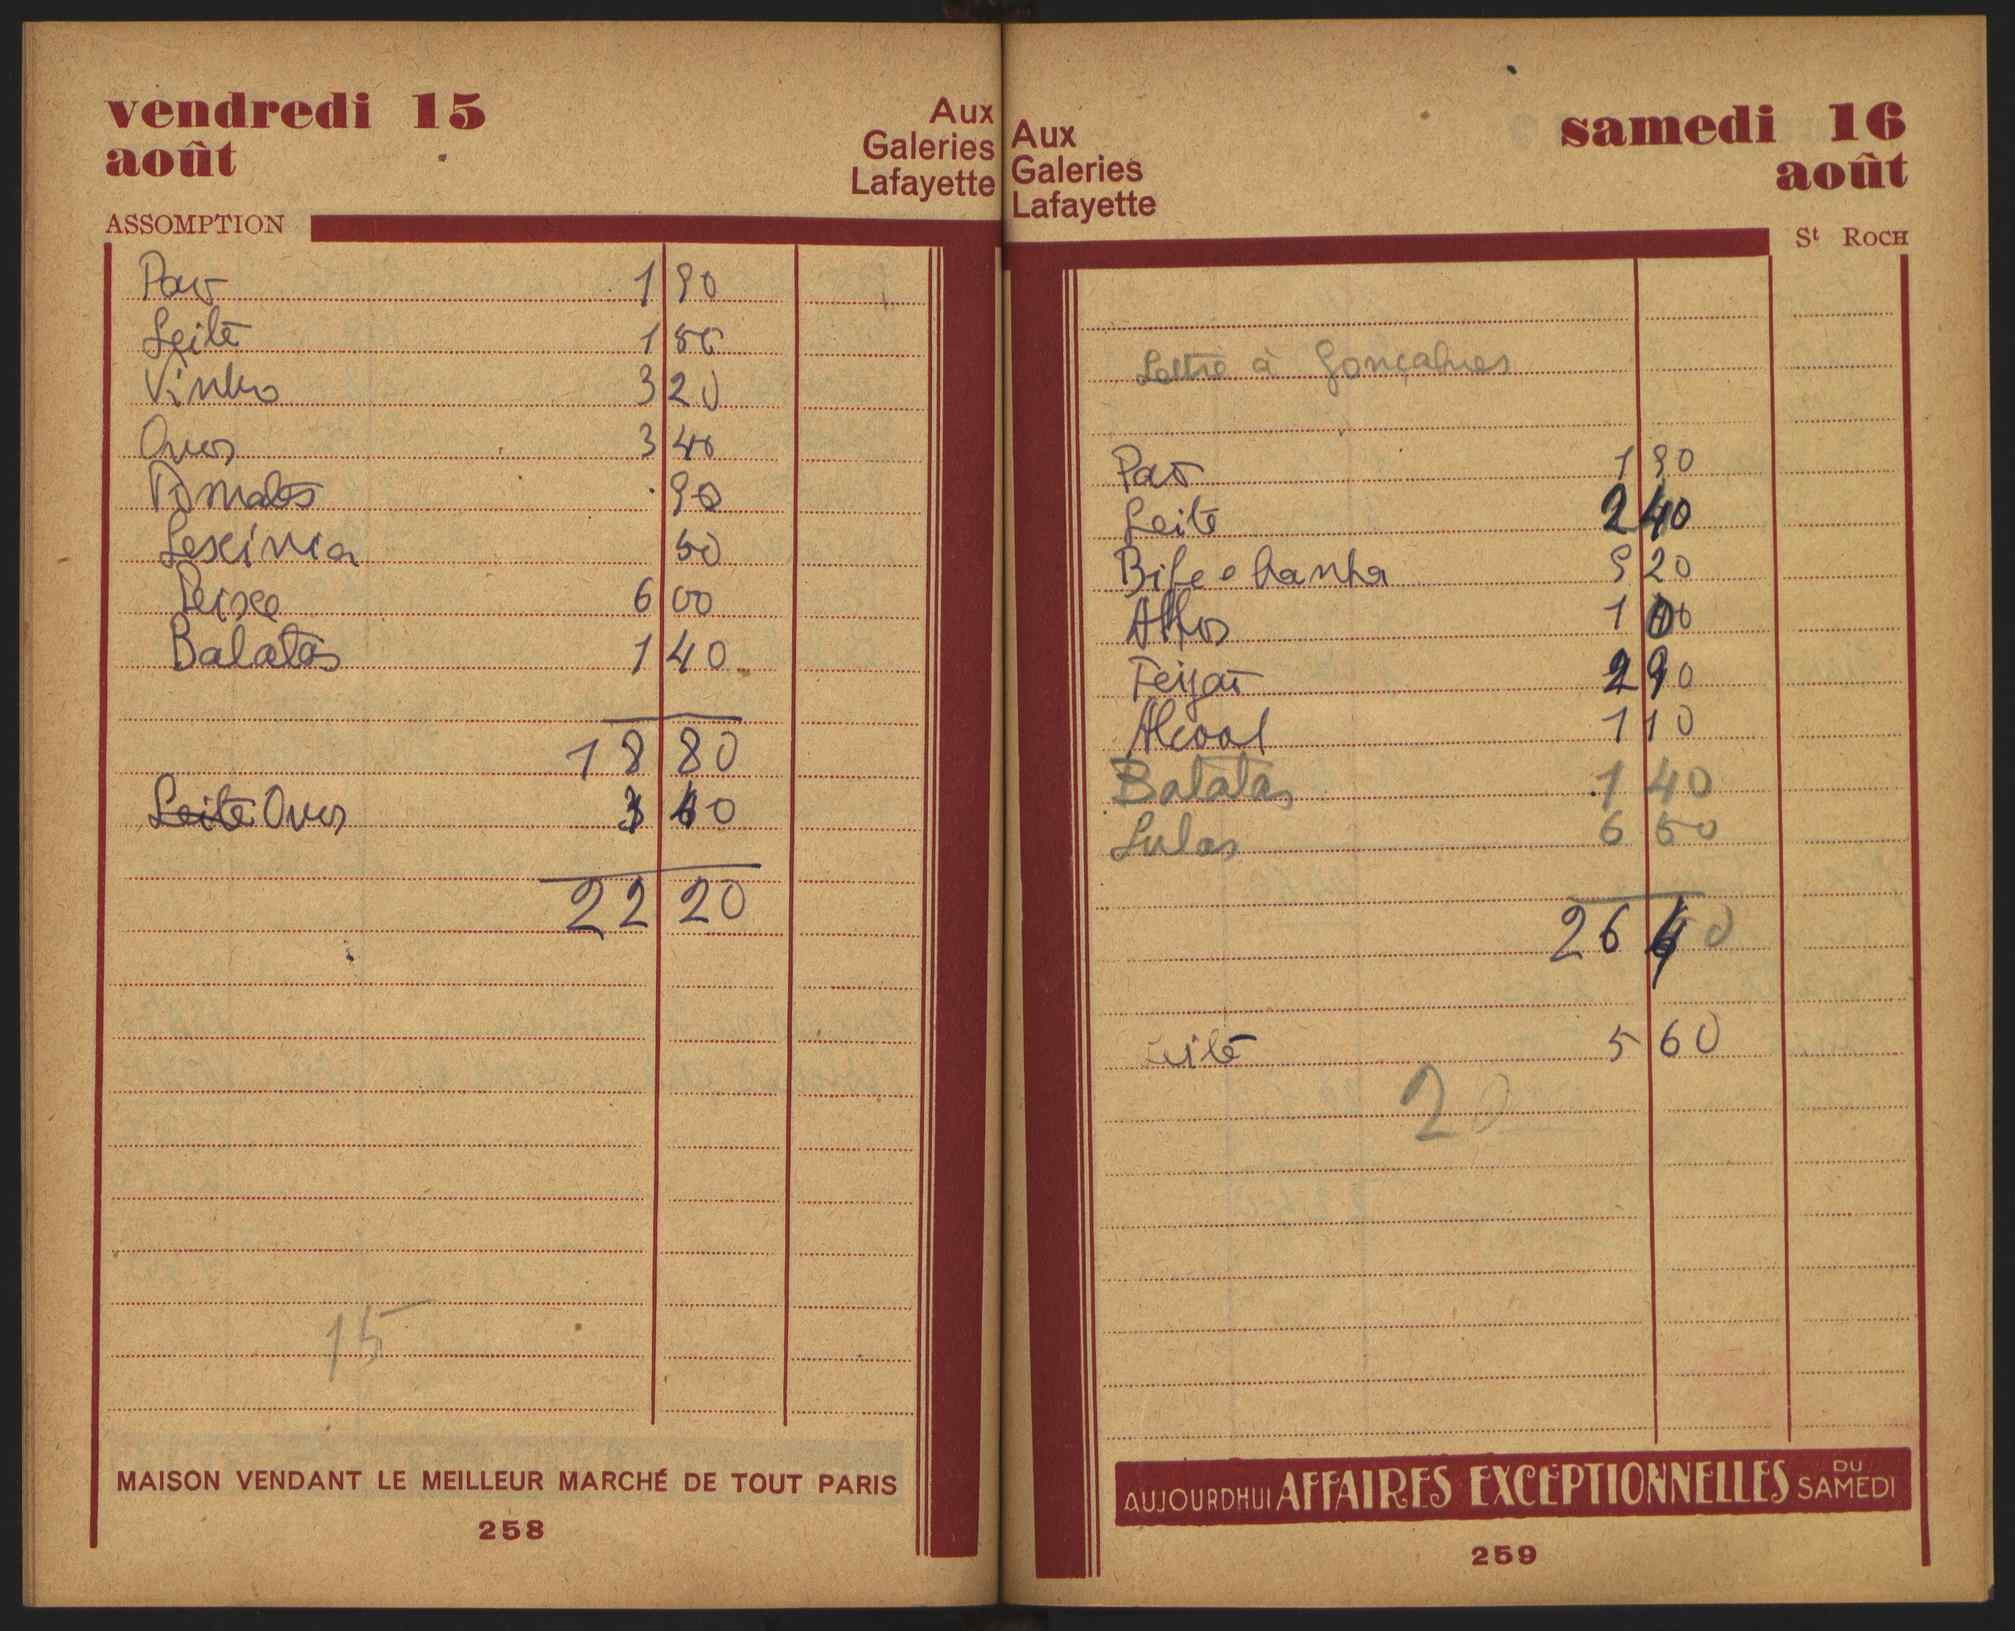 vendredi 15
août
Aux
Galeries
Lafayette
ASSOMPTION
Pao 1 90
Leite 1 50
Vinho 3 20
Ovos 3 40
Tomates 90
Lexivia 50
Peixe 6 00
Batatas 1 40
18 80
Leite Ovos 3 40
22 20
15
MAISON VENDANT LE MEILLEUR MARCHÉ DE TOUT PARIS
258
Aux
Galeries
Lafayette
samedi 16
août
St ROCH
Lettre à Gonçalves
Pao 1 90
Leite 2 40
Bife e banha 9 20
Alhos 1 00
Feijao 2 90
Alcool 1 10
Batatas 1 40
Lulas 6 50
26 40
Leite 5 60
20
AUJOURDHUI AFFAIRES EXCEPTIONNELLES DU SAMEDI
259